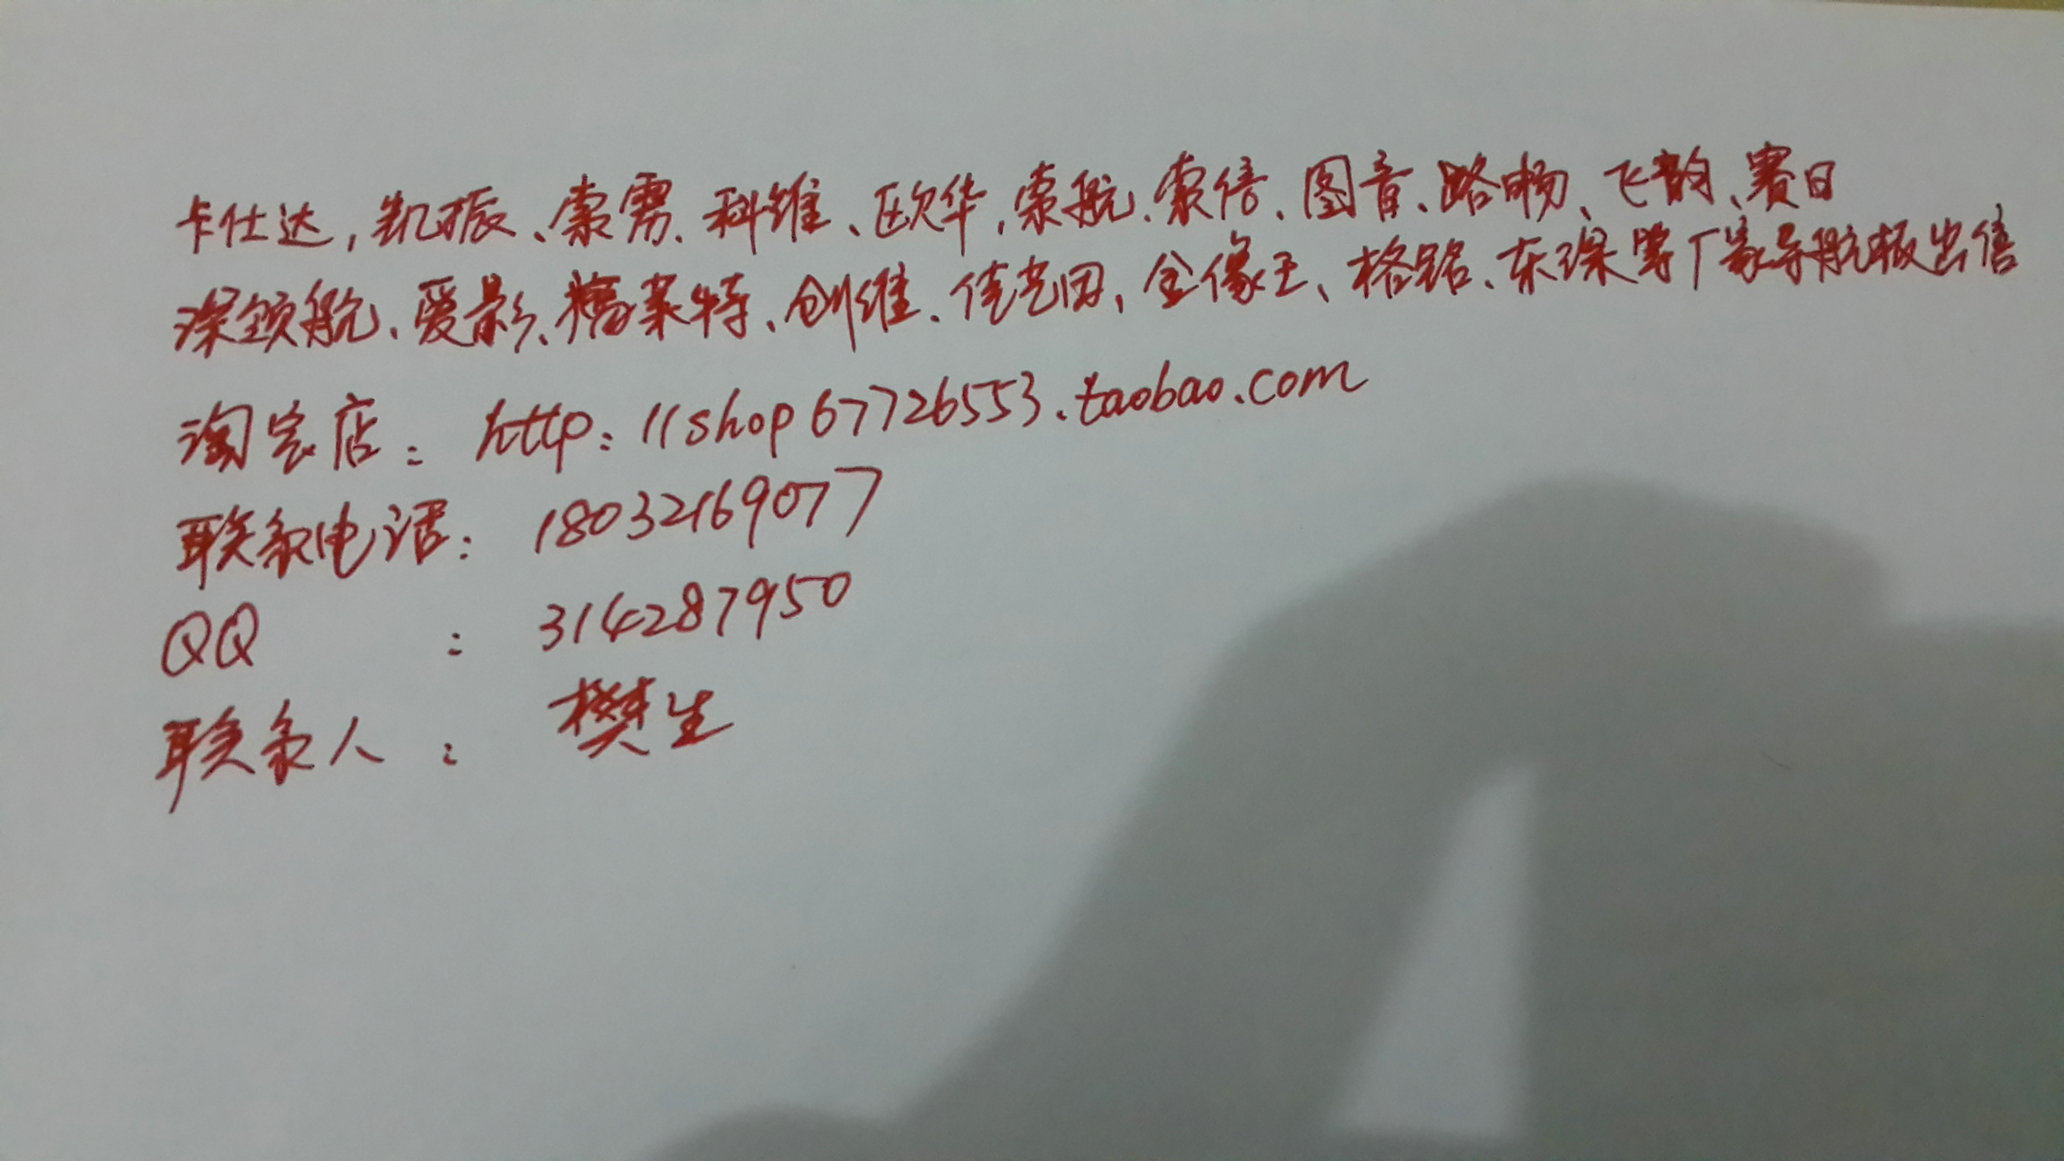 卡仕达,凯振、索雳、科维、欧华,索航、索倍、图音、路畅、飞韵、赛日
深领航、爱影、精莱特、创维、佳艺田、金像王、格路、东琛等厂家导航板出售
淘宝店: http://shop67726553.taobao.com
联系电话: 18032169077
QQ : 314287950
联系人: 樊生